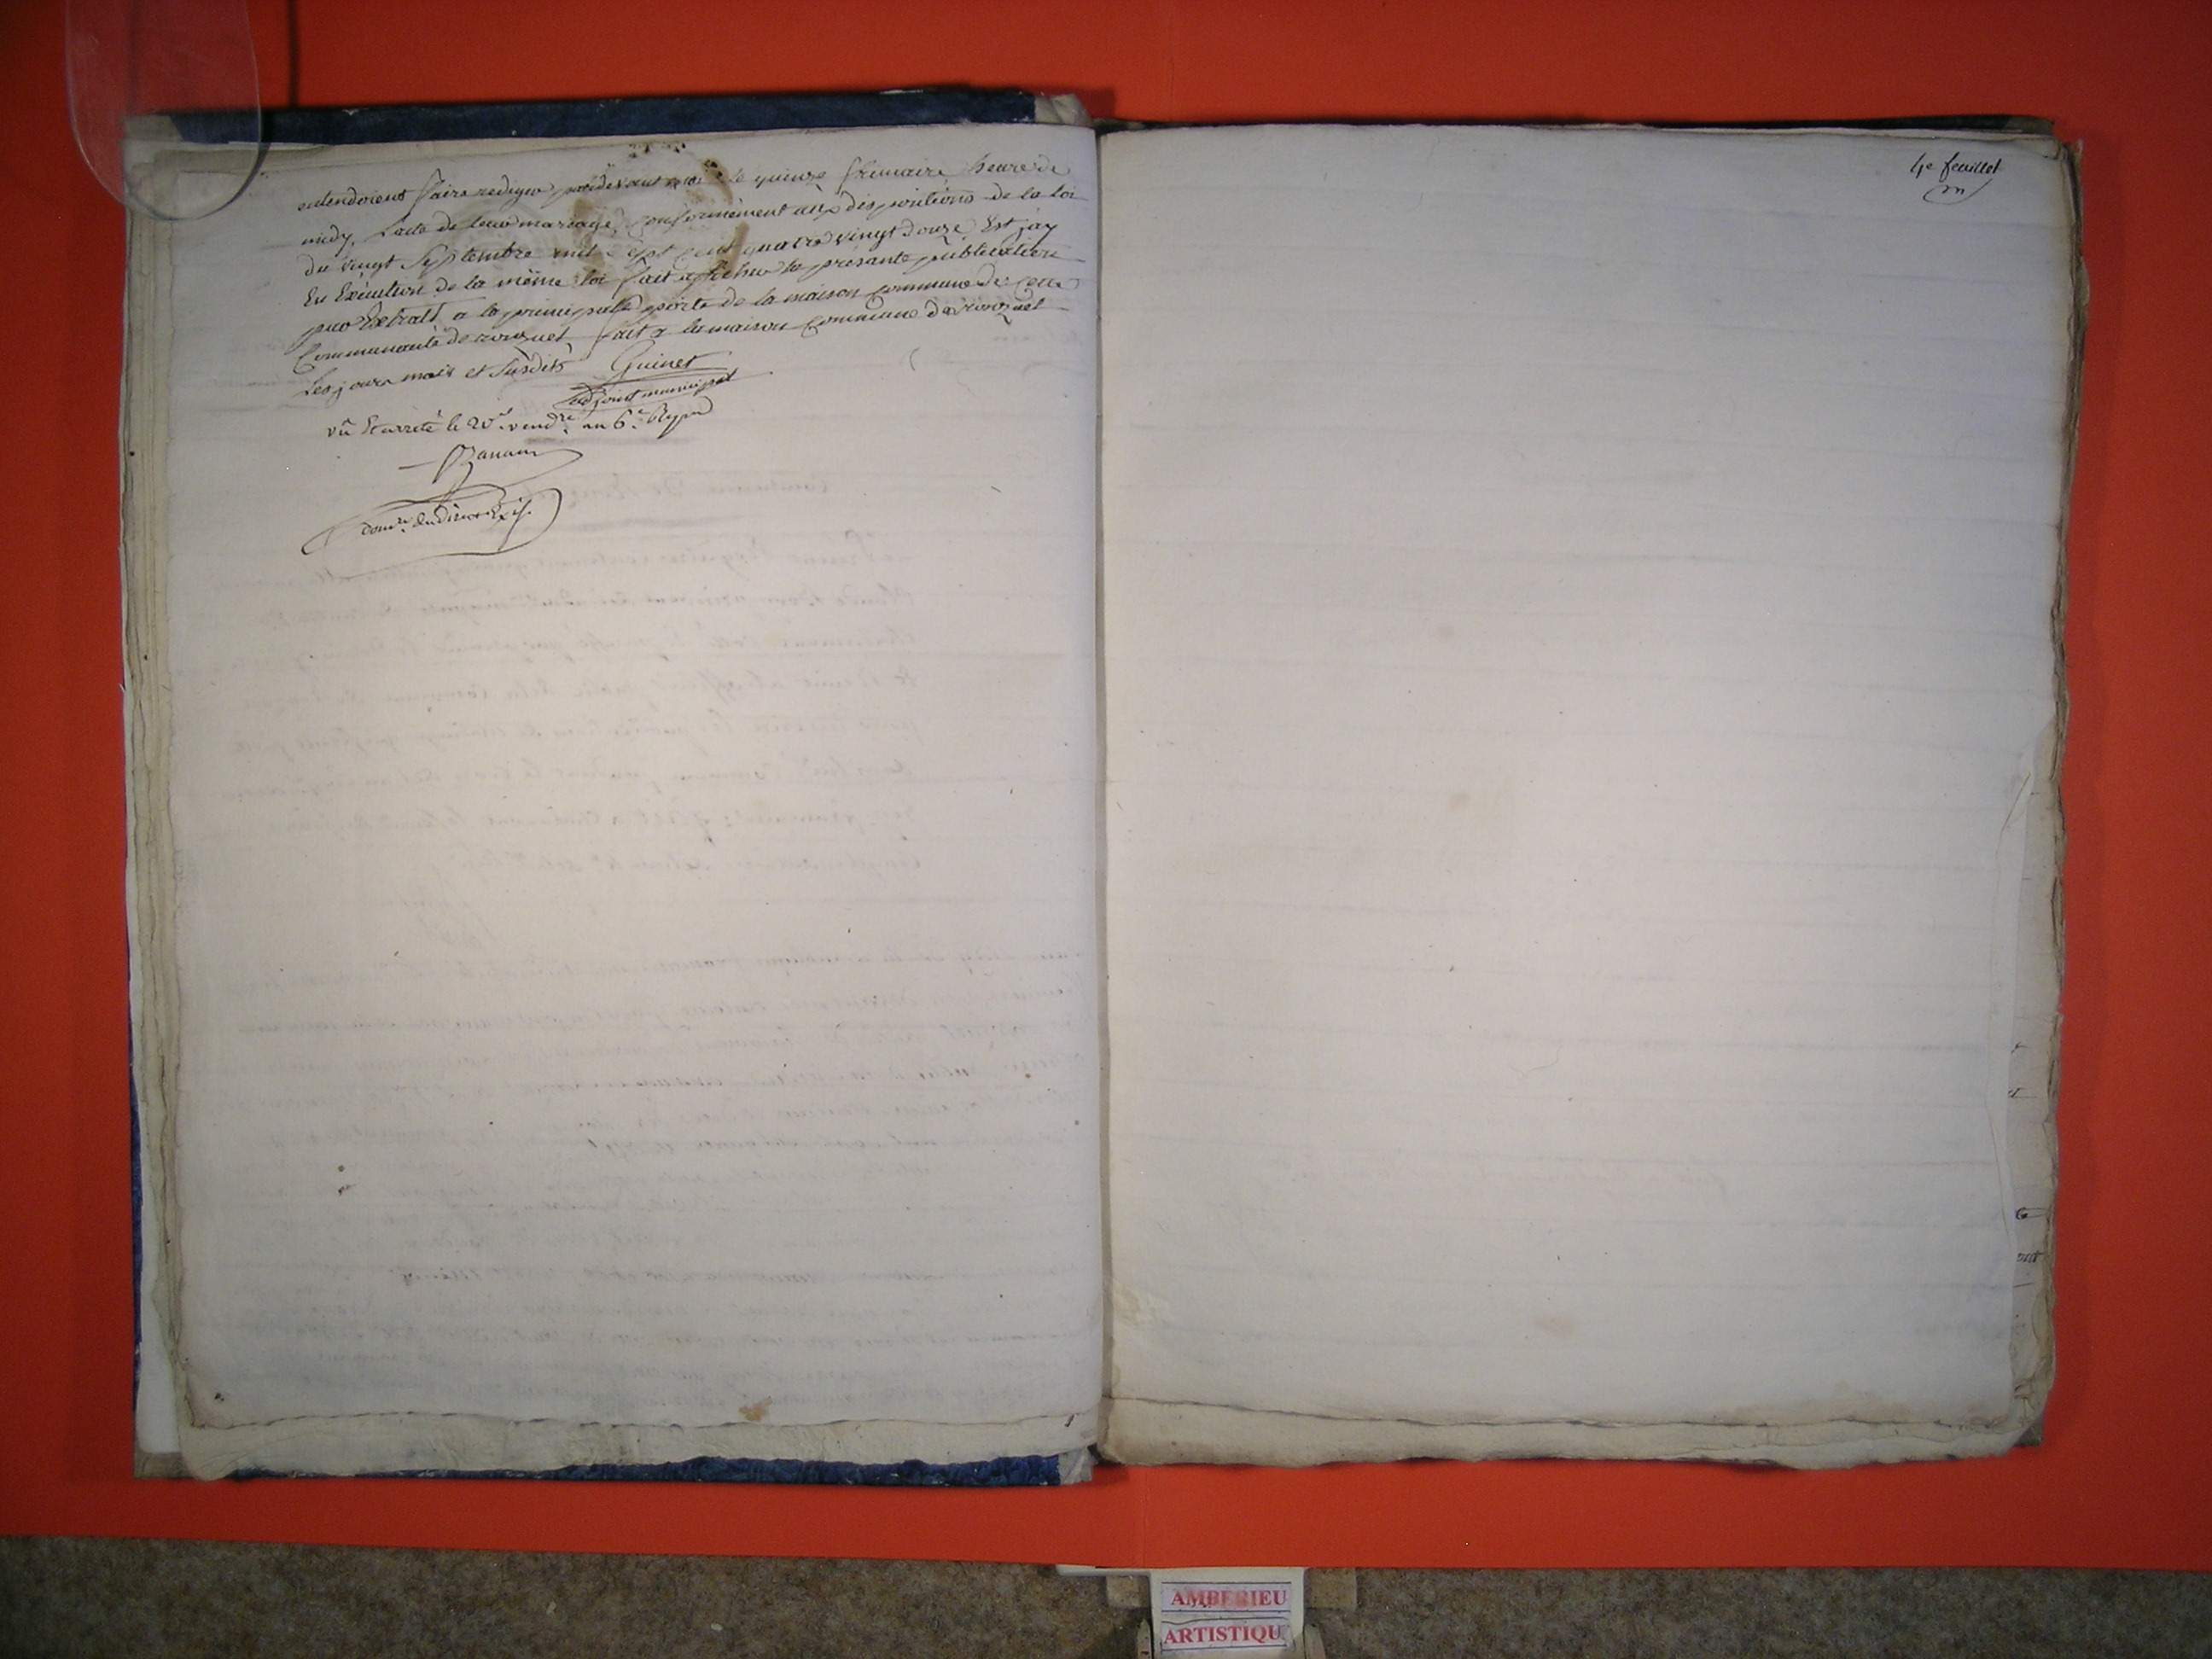 entendoient faire rediger pardevant moi le quinze frimaire heure de
midy, l'acte de leur mariage, conformément aux dispositions de la loi
du vingt septembre mil sept cent quatre vingt douze, Est jay
En Exécution de la même loi fait afficher la présante publication
par Extrait a la principalle porte de la maison commune de cette
Communauté de fait a la maison commune de
Les jours mois et susdits Guinet
adjoint municipal
vû Et arrêté le 20e. vendre. an 6e.
comre. du direct. Exif.
4e feuillet
AMBERIEU
ARTISTIQU